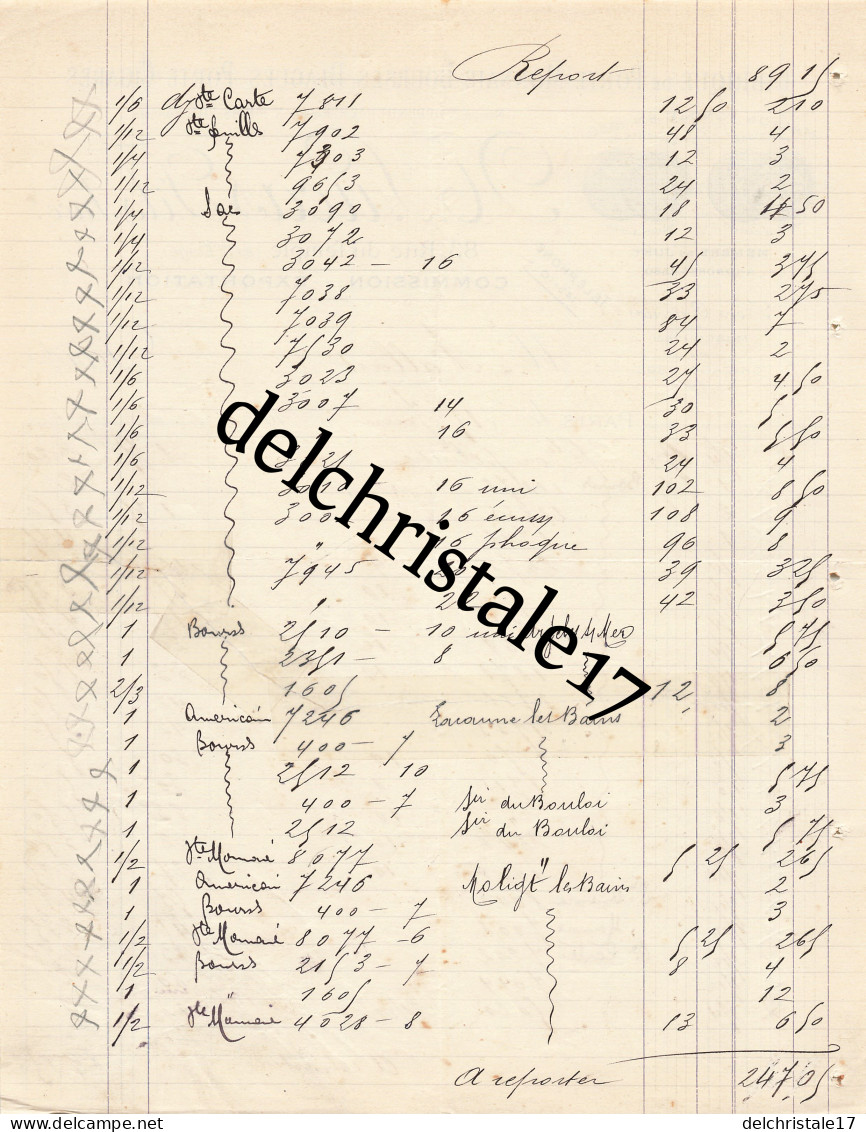 Report 89 15
1/6 dz pte Carte 7811 12 50 2 10
1/12 pte feuille 7902 48 4
1/4 7303 12 3
1/12 9653 24 2
1/4 Sac 3090 18 50
1/4 3072 12 3
1/12 3042 - 16 45 3 75
1/12 7038 33 2 75
1/12 7039 84 7
1/12 7530 24 2
1/6 3023 27 4 50
1/6 3007 14 30 5
1/6 16 33 5 50
1/6 24 4
1/12 16 uni 102 8 50
1/12 300 16 108 9
1/12 " phoque 96 8
1/12 7945 39 3 25
1/12 " 42 3 50
1 Bourse 2510 - 10 s/ Mer 5 75
1 2351 - 8 6 50
2/3 1605 12 8
1 Americain 7246 Lacaune les Bains 2
1 Bourse 400 - 7 3
1 2512 10 5 75
1 400 - 7 du Bouloi 3
1 2512 du Bouloi 5 75
1/2 pte Monnaie 8077 5 25 2 65
1 Americain 7246 Moligt les Bains 2
1 Bourse 400 - 7 3
1/2 pte Monnaie 8077 - 6 5 25 2 65
1/2 Bourse 2153 - 7 8 4
1 " 1605 12
1/2 pte Monnaie 4028 - 8 13 6 50
A reporter 247.05
delchristale17
delcampe.net
delchristale17